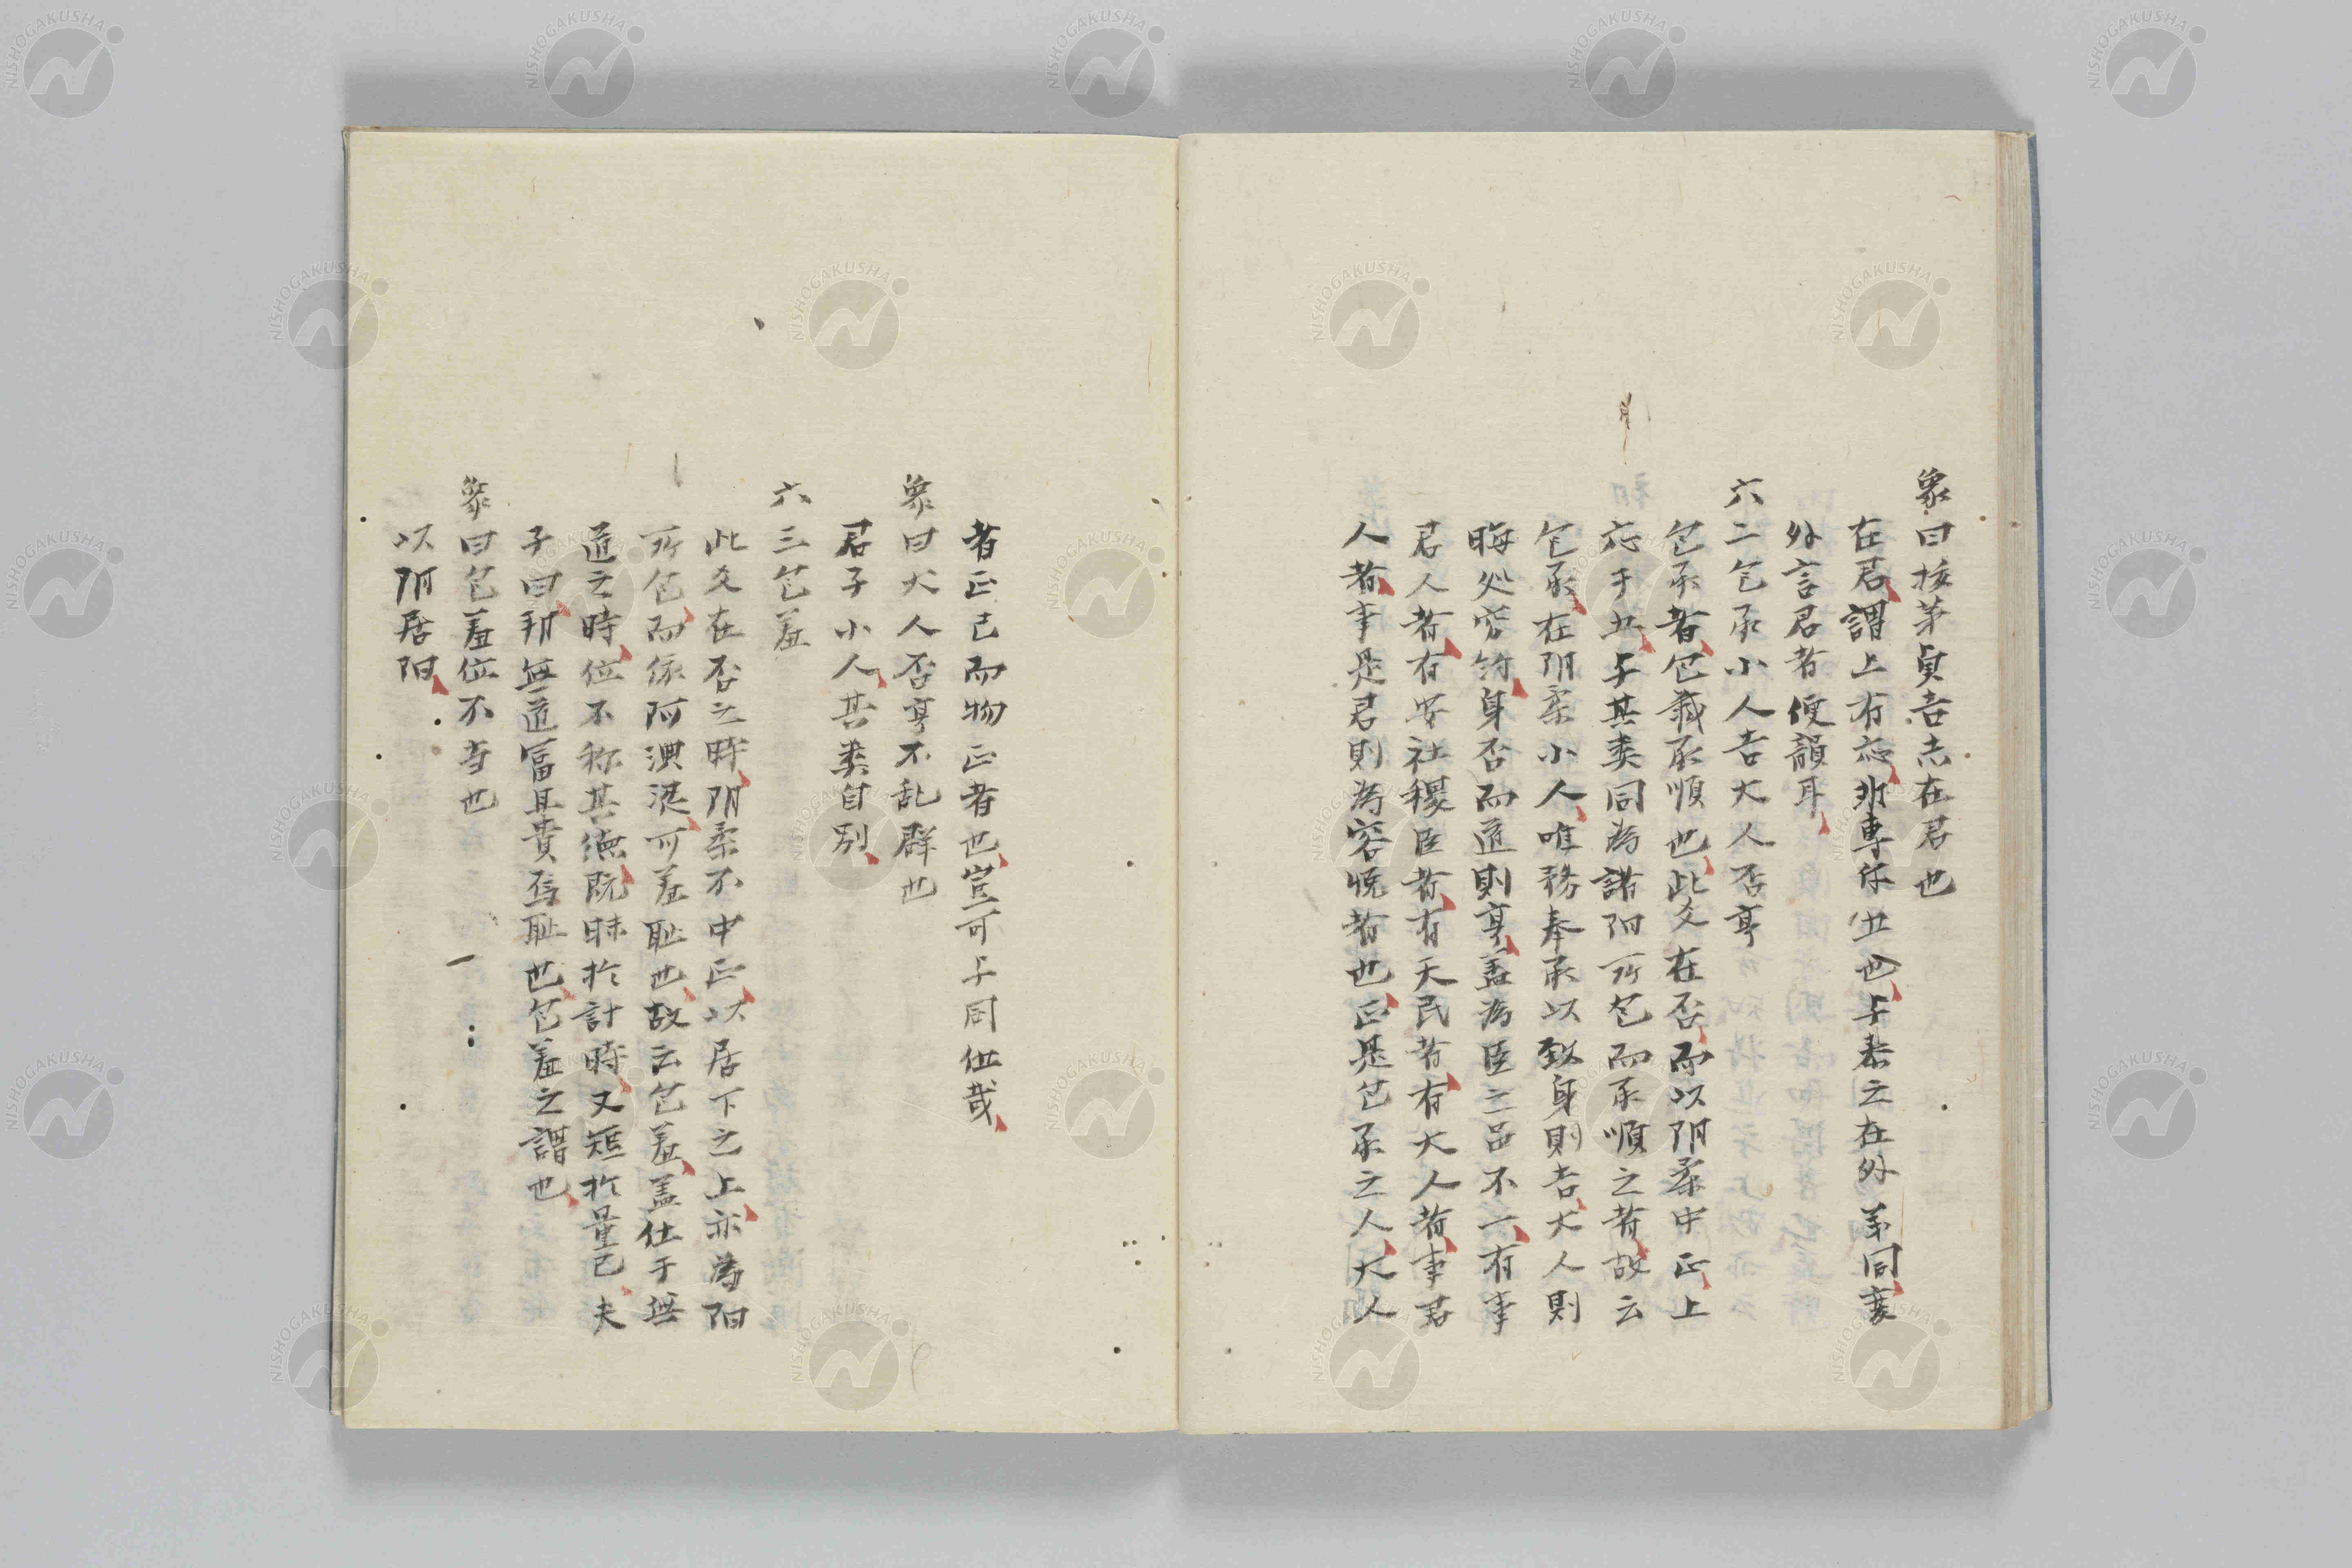 象曰拔茅貞吉志在君也
在君謂上有応非専係五也与泰之在外茅同变
外言君者便韻耳
六二包承小人吉大人否亨
包承者包載承順也此爻在否而以阴柔中正上
応于五与其类同為諸阳所包而承順之者故云
包承在阴柔小人唯務奉承以致身則吉大人則
晦処守約身否而道則亨盖為臣之品不一有事
君人者有安社稷臣者有天民者有大人者事君
人者事是君則為容悦者也正是包承之人大人
者正己而物正者也豈可与同位哉
象曰大人否亨不乱群也
君子小人其类自别
六三包羞
此爻在否之時阴柔不中正以居下之上亦為阳
所包而係阿澳涊可羞耻也故云包羞盖仕于無
道之時位不称其徳既昧於計時又短於量己夫
子曰邦無道冨且貴焉耻也包羞之謂也
象曰包羞位不当也
以阴居阳
NISHOGAKUSHA